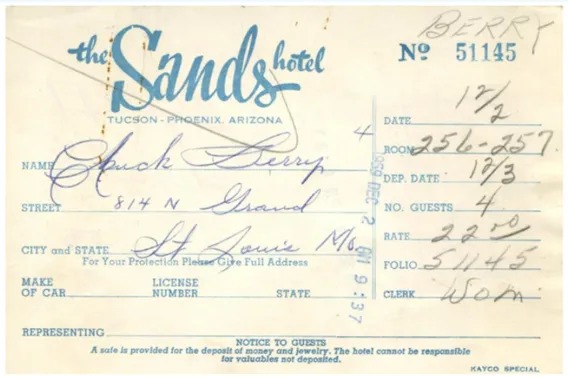 BERRY
the Sands hotel
Nº 51145
TUCSON - PHOENIX, ARIZONA
DATE 12/2
4
ROOM 256-257
NAME Chuck Berry
DEP. DATE 12/3
STREET 814 N Grand
NO. GUESTS 4
RATE 22 00
CITY and STATE St Louis Mo.
For Your Protection Please Give Full Address
FOLIO 51145
MAKE OF CAR LICENSE NUMBER STATE
CLERK
959 DEC 2 9:37
REPRESENTING
NOTICE TO GUESTS
A safe is provided for the deposit of money and jewelry. The hotel cannot be responsible
for valuables not deposited.
KAYCO SPECIAL